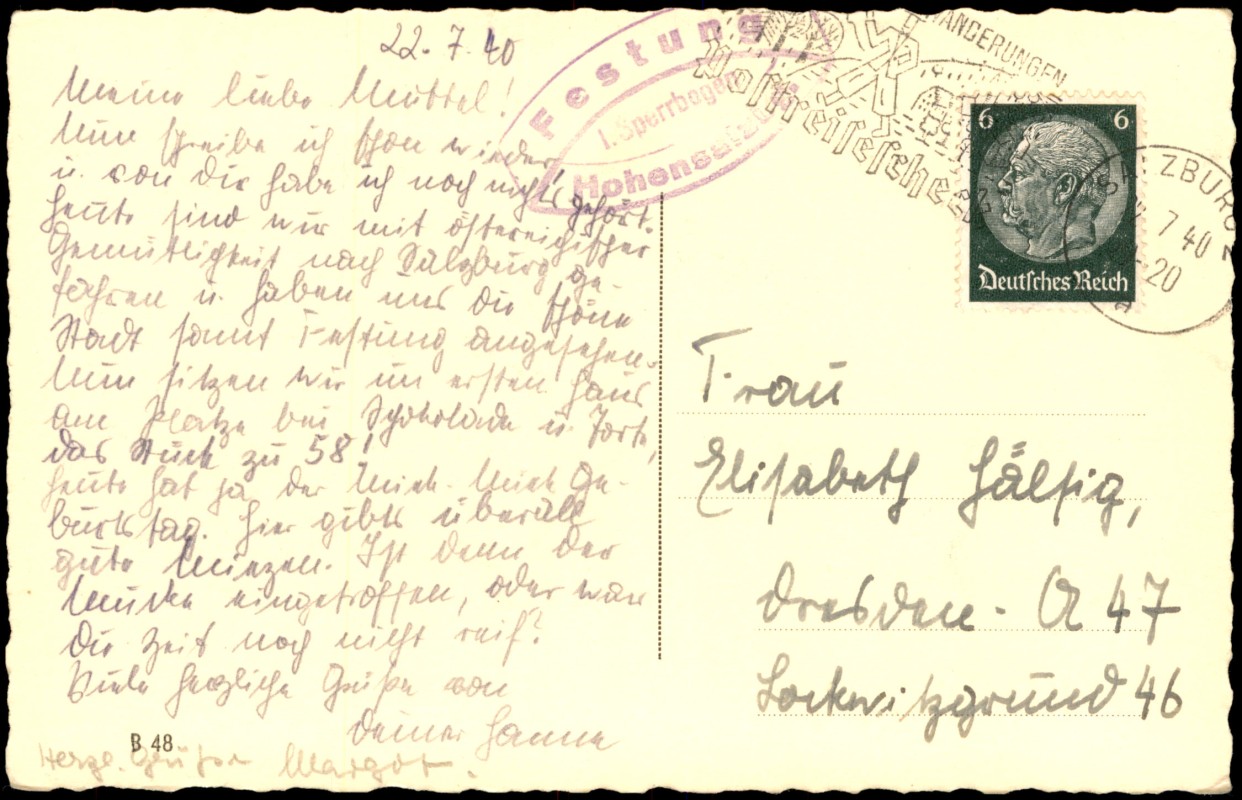 22.7.40
Meine liebe Muttel!
Nun schreibe ich schon wieder
u. von dir habe ich noch nichts gehört.
Heute sind wir mit östereichischer
Gemütlichkeit nach Salzburg ge-
fahren u. haben uns die schöne
Stadt samt Festung angesehen.
Nun sitzen wir im ersten Haus
am Platze bei Schokolade u. Torte,
das Stück zu 58!
Heute hat ja der Ge-
burtstag. Hier gibts überall
gute Miezen. Ist denn der
eingetroffen, oder war
die Zeit noch nicht reif?
Viele herzliche Grüße von
deiner Hanne
Herzl. Grüße Margot.
B 48
Festung
1. Sperrbogen
Hohensalzburg
WANDERUNGEN
Postreisescheck
6 6
Deutsches Reich
SALZBURG 2
7 40
-20
Frau
Elisabeth Hälsig,
Dresden-A 47
Lockwitzgrund 46